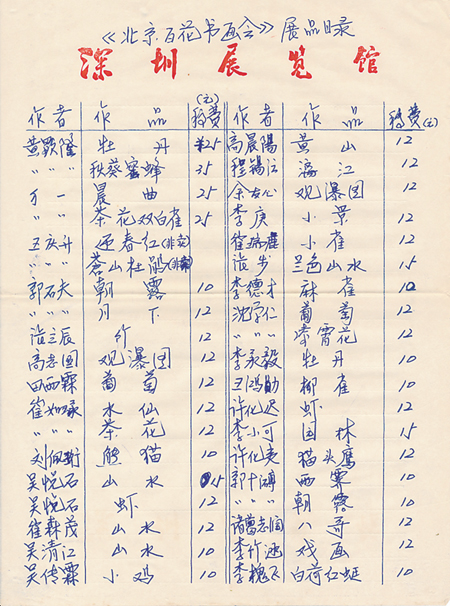 《北京百花书画会》展品目录
深圳展览馆
作者 作品 稿费(元) 作者 作品 稿费(元)
黄顕隆 牡丹 25 高晨陽 黄山 12
〃〃〃 秋葵蜜蜂 35 程锡江 漓江 12
万一 晨曲 25 余友心 观瀑图 12
〃〃 茶花双白雀 25 李庚 小景 12
王庆升 迎春红(非卖) 崔瑞鹿 小雀 12
〃〃 苍山杜鹃(非卖) 步 兰色山水 15
郭石夫 朝露 10 李德才 麻雀 10
〃〃 月下 12 沈学仁 葡萄 12
竹 12 〃〃〃 凌霄花 12
高志国 观瀑图 12 李永毅 牡丹 10
田西霖 葡萄 12 王鸿勛 柳雀 10
崔如琢 水仙 12 许化迟 虾 12
〃〃〃 茶花 12 李小可 园林 15
刘佩珩 熊猫 10 许化夷 猫头鹰 12
吴悦石 山水 15 郭 西 12
吴悦石 虾 12 〃〃〃 朝露 10
崔森茂 山水 12 诸葛志润 八哥 12
吴清江 山水 10 李竹 戏画 12
吴传霖 小鸡 10 李槐飞 白荷红蜓 10